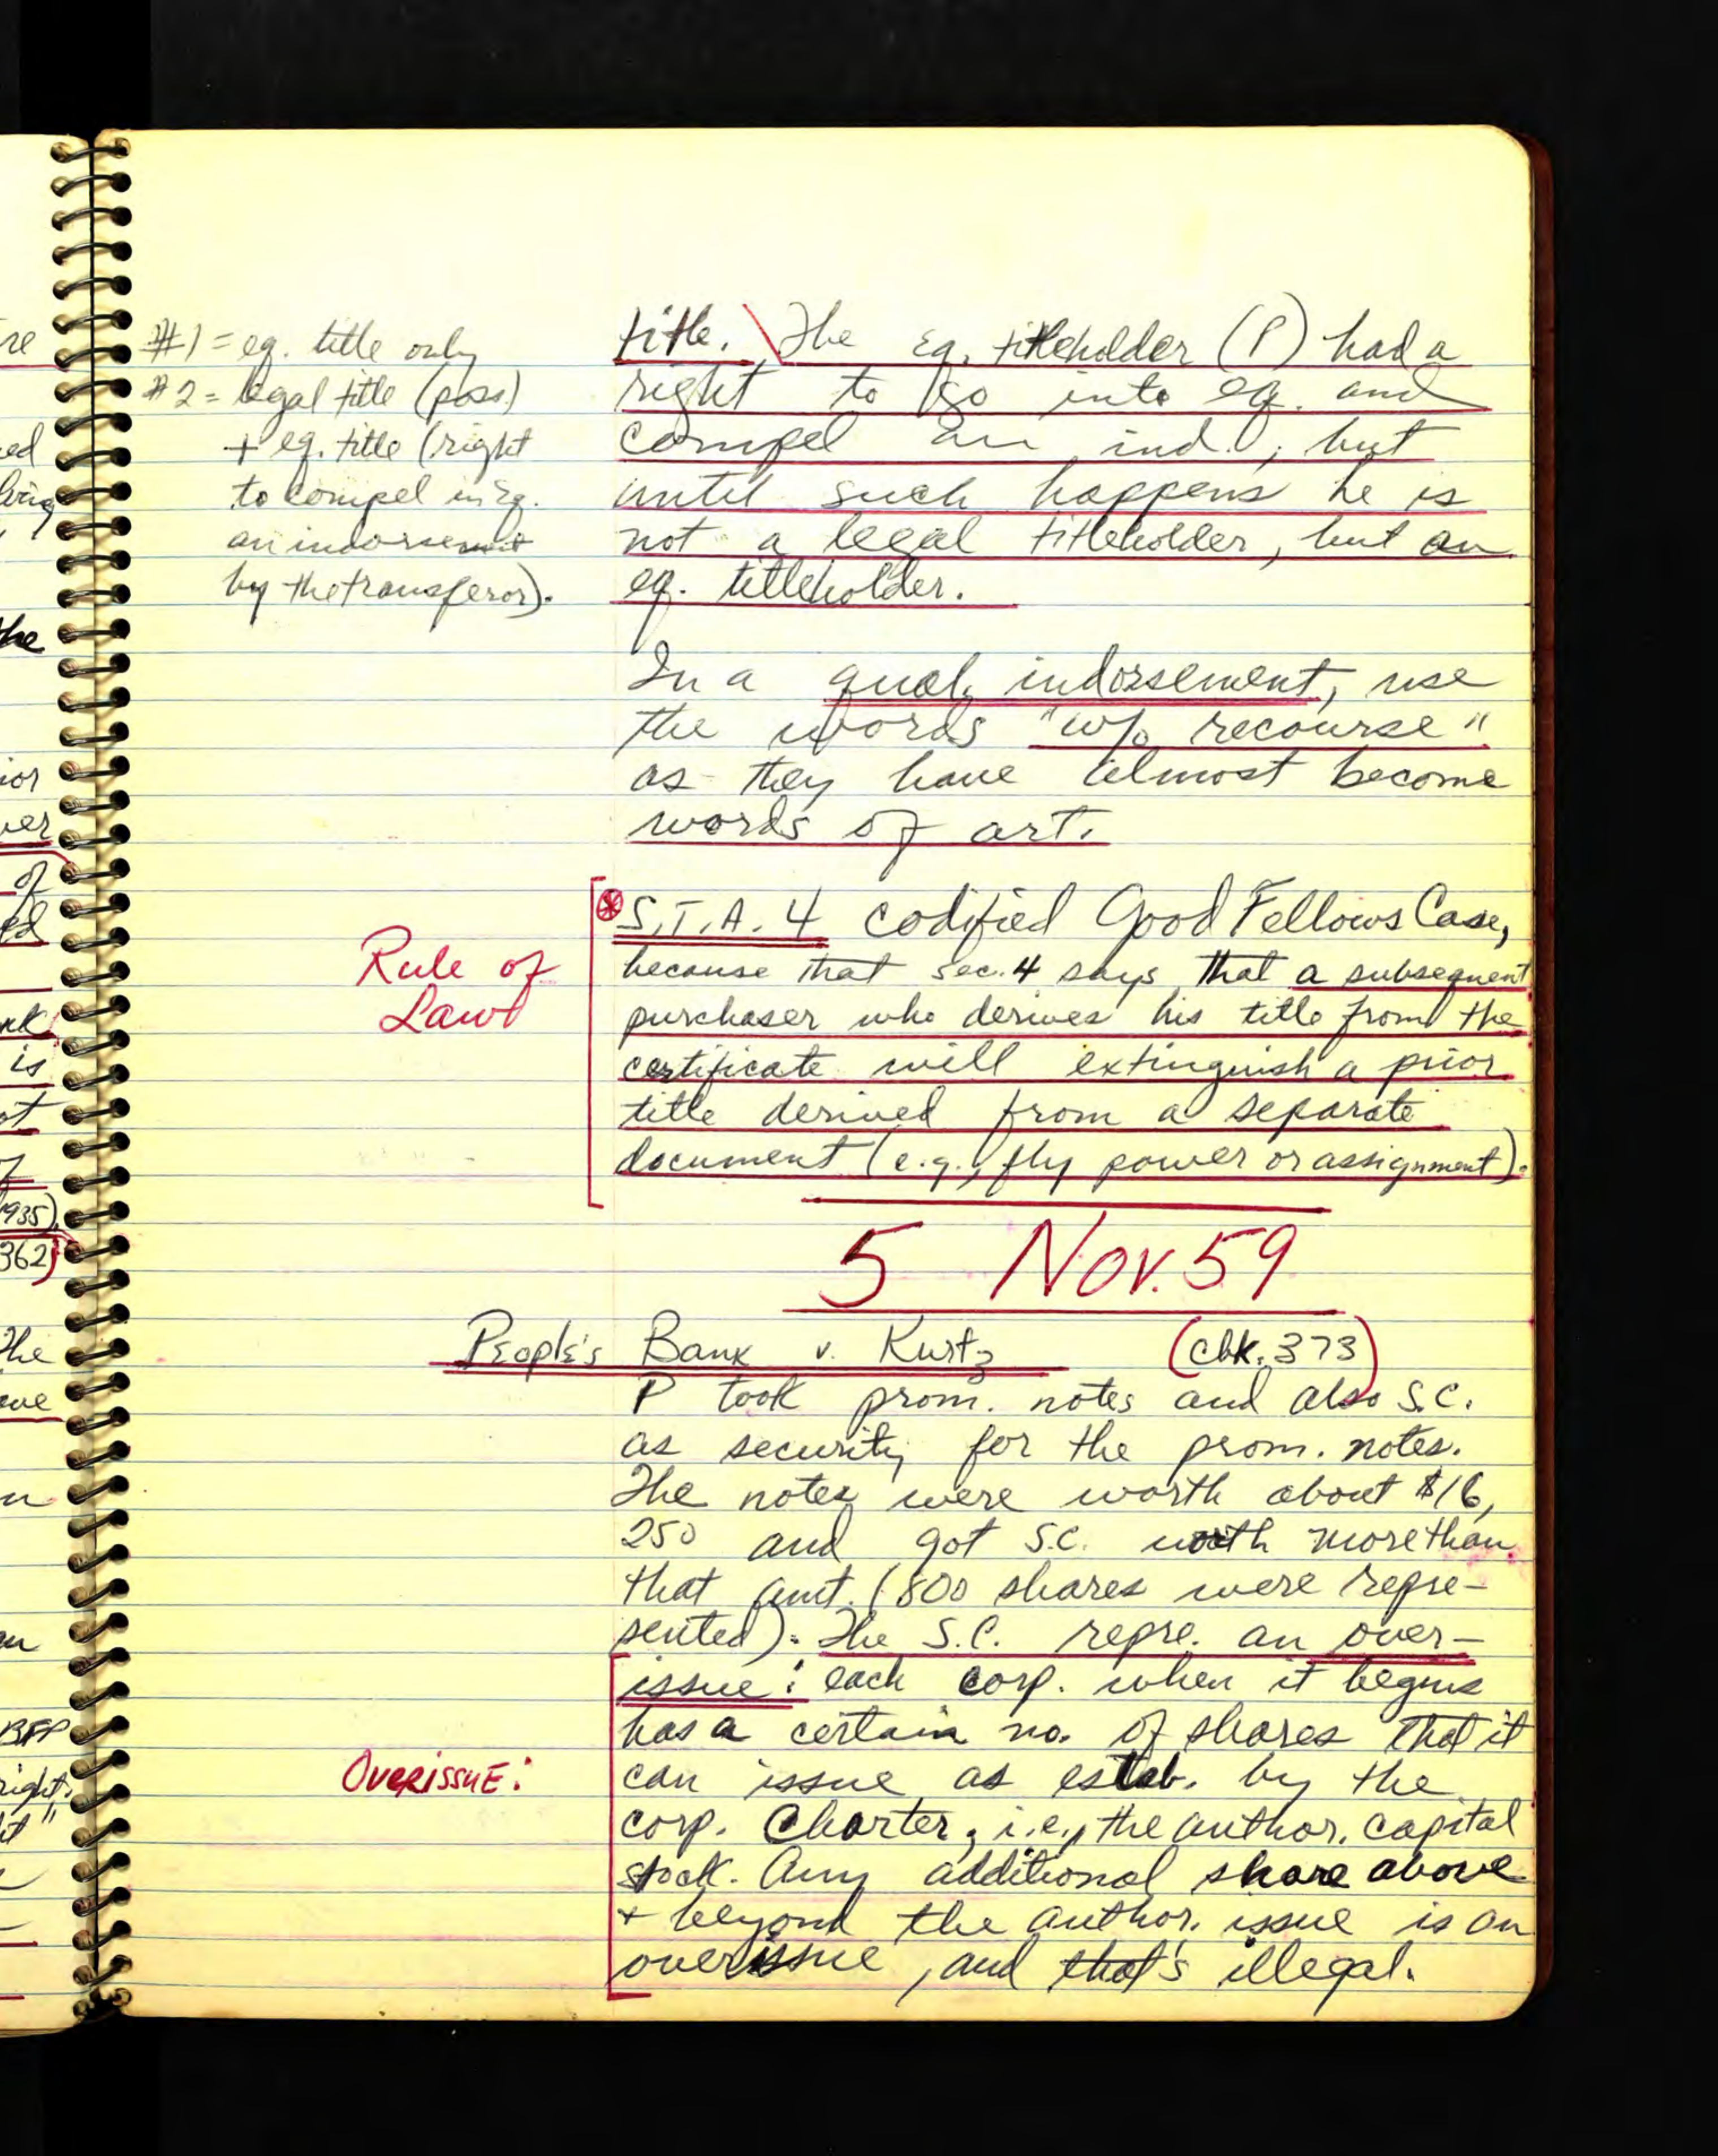 #1 = eq. title only
#2 = legal title (poss)
+ eq. title (right
to compel in eq.
an indorsement
by the transferor).
title. The eq. titleholder (P) had a
right to go into eq. and
compel an ind.; but
until such happens he is
not a legal titleholder, but an
eq. titleholder.
In a qual. indorsement, use
the words "w/o recourse"
as they have almost become
words of art.
Rule of
Law
S.T.A. 4 codified Good Fellows Case,
because that sec. 4 says that a subsequent
purchaser who derives his title from the
certificate will extinguish a prior
title derived from a separate
document (e.g., fly power or assignment).
5 Nov. 59
People's Bank v. Kurtz (cbk. 373)
P took prom. notes and also S.C.
as security for the prom. notes.
The notes were worth about $16,
250 and got S.C. worth more than
that amt. (800 shares were repre-
sented). The S.C. repre. an over-
issue: each corp. when it begins
has a certain no. of shares that it
Overissue:
can issue as estab. by the
corp. Charter, i.e., the author. capital
stock. Any additional share above
+ beyond the author. issue is an
overissue, and that's illegal.
re
ed
the
ior
ver
of
ed
is
ot
1935).
362)
The
BFP
right